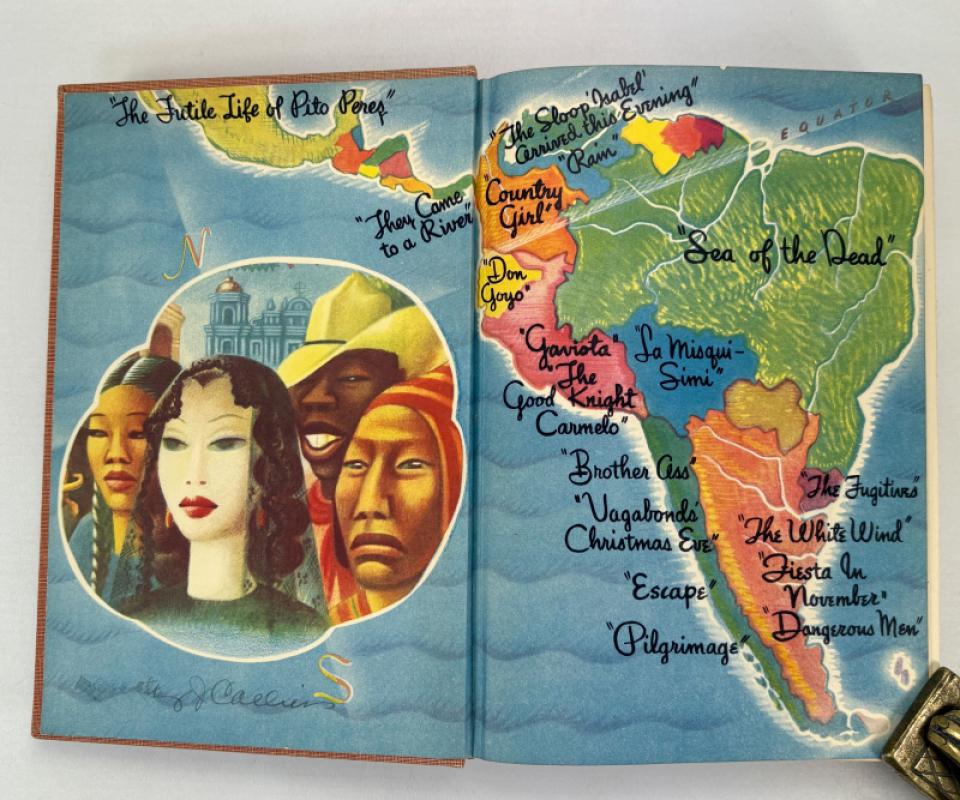 "The Futile Life of Pito Perez"
"They Came
to a River"
N
S
"The Sloop 'Isabel'
Arrived this Evening"
"Rain"
EQUATOR
"Country
Girl"
"Sea of the Dead"
"Don
Goyo"
"Gaviota"
"The
Good Knight
Carmelo"
"La Misqui-
Simi"
"Brother Ass"
"The Fugitives"
"Vagabonds'
Christmas Eve"
"The White Wind"
"Fiesta In
November"
"Escape"
"Dangerous Men"
"Pilgrimage"